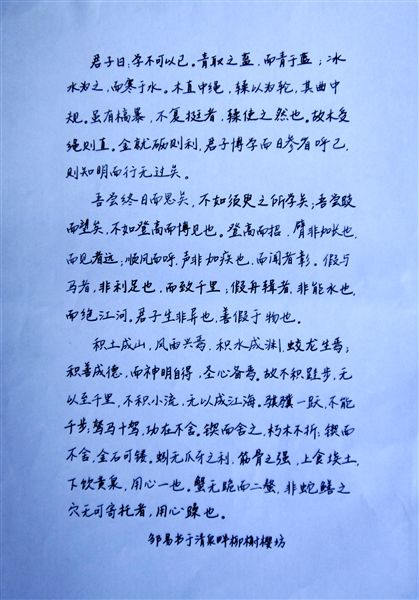 君子曰：学不可以已。青取之蓝，而青于蓝；冰
水为之，而寒于水。木直中绳，𫐓以为轮，其曲中
规。虽有槁暴，不复挺者，𫐓使之然也。故木受
绳则直。金就砺则利，君子博学而日参省乎己，
则知明而行无过矣。
吾尝终日而思矣，不如须臾之所学矣；吾尝跂
而望矣，不如登高而博见也。登高而招，臂非加长也，
而见者远；顺风而呼，声非加疾也，而闻者彰。假与
马者，非利足也，而致千里；假舟楫者，非能水也，
而绝江河。君子生非异也，善假于物也。
积土成山，风雨兴焉，积水成渊，蛟龙生焉；
积善成德，而神明自得，圣心备焉。故不积跬步，无
以至千里，不积小流，无以成江海。骐骥一跃，不能
十步；驽马十驾，功在不舍。锲而舍之，朽木不折；锲而
不舍，金石可镂。蚓无爪牙之利，筋骨之强，上食埃土，
下饮黄泉，用心一也。蟹六跪而二螯，非蛇鳝之
穴无可寄托者，用心躁也。
邹易书于清泉畔柳榭樱坊